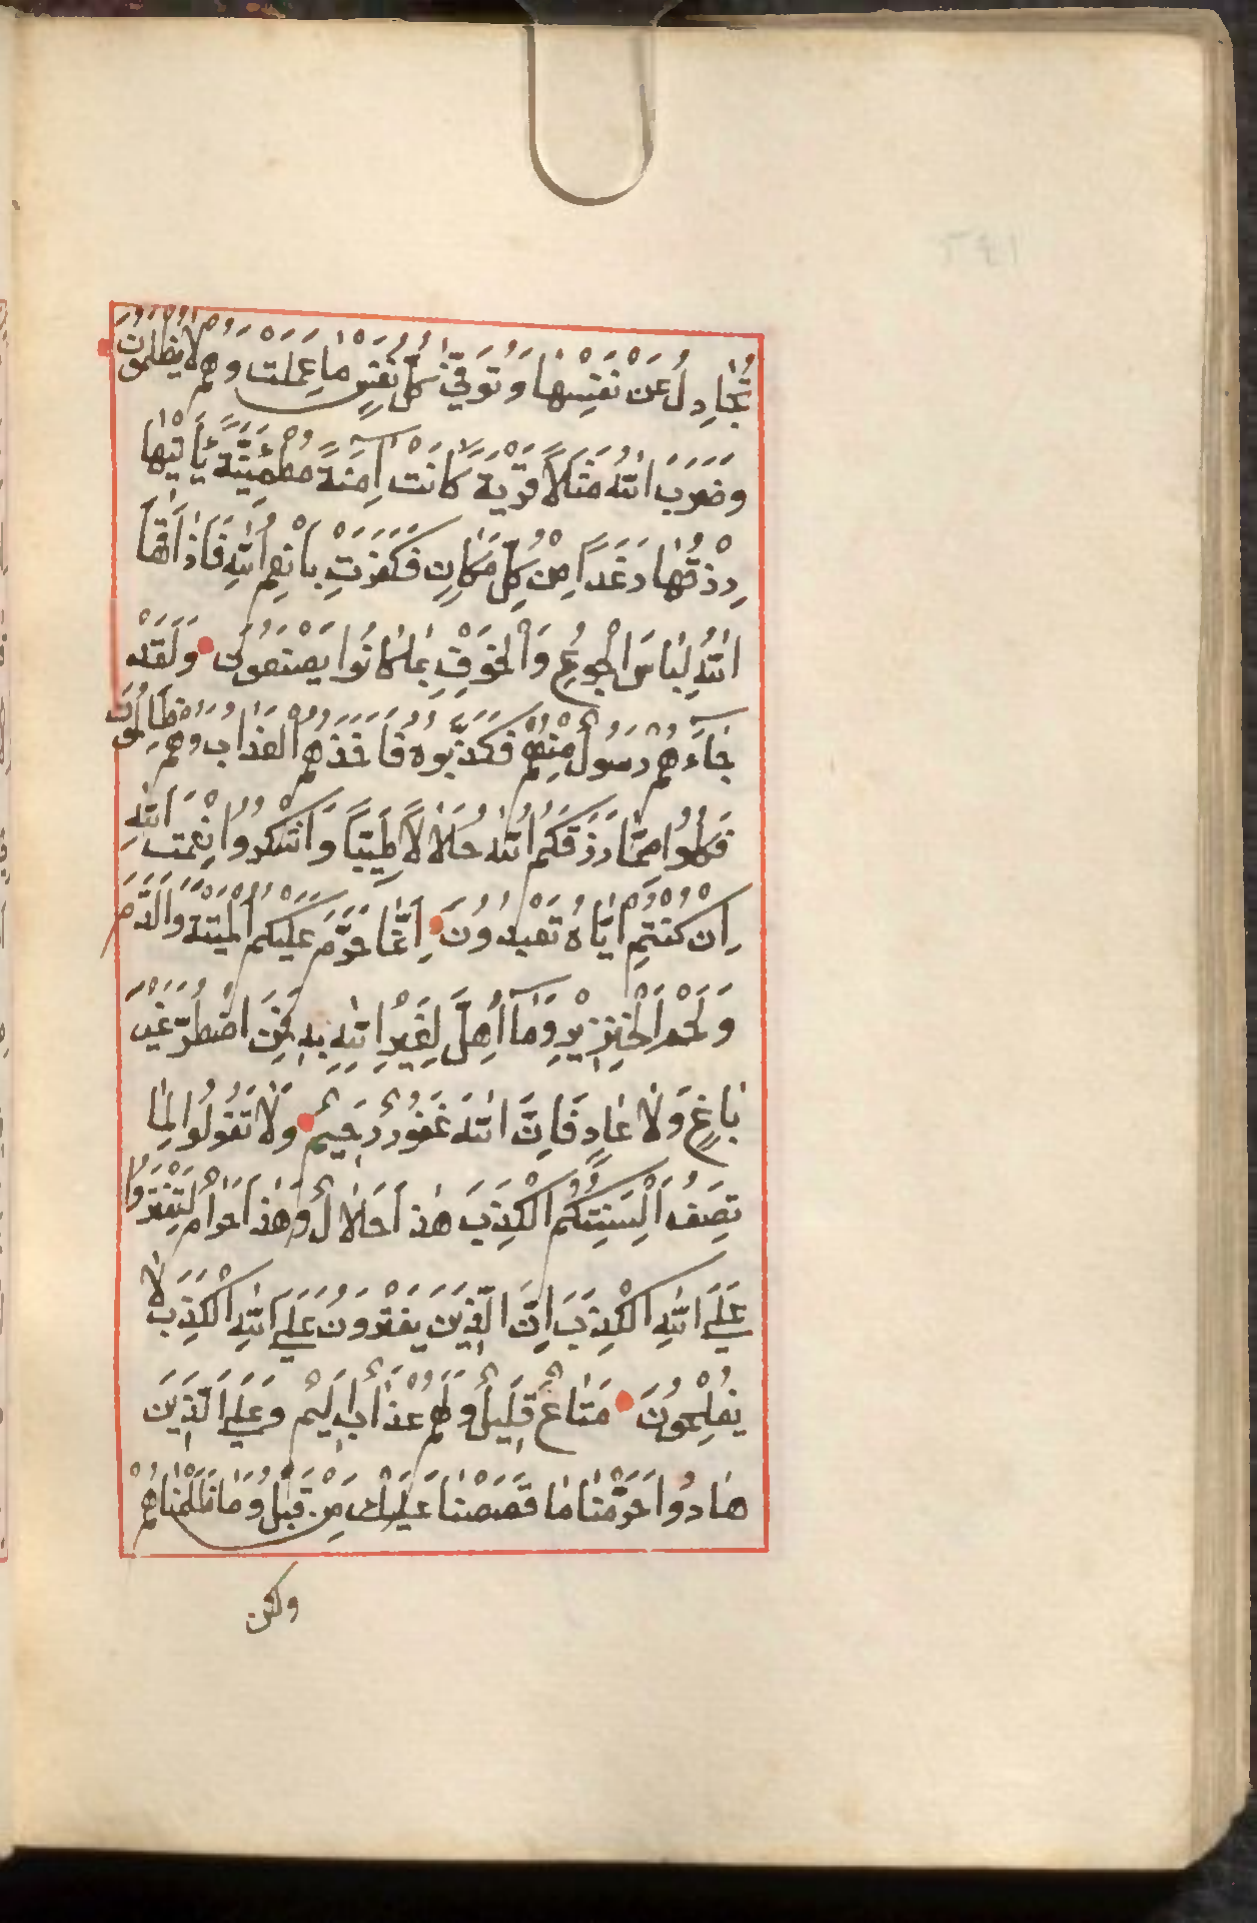 تُجَادِلُ عَنْ نَفْسِهَا وَتُوَفّٰى كُلُّ نَفْسٍ مَا عَمِلَتْ وَهُمْ لَا يُظْلَمُونَ
وَضَرَبَ اللّٰهُ مَثَلًا قَرْيَةً كَانَتْ آمِنَةً مُطْمَئِنَّةً يَأْتِيهَا
رِزْقُهَا رَغَدًا مِنْ كُلِّ مَكَانٍ فَكَفَرَتْ بِأَنْعُمِ اللّٰهِ فَأَذَاقَهَا
اللّٰهُ لِبَاسَ الْجُوعِ وَالْخَوْفِ بِمَا كَانُوا يَصْنَعُونَ وَلَقَدْ
جَاءَهُمْ رَسُولٌ مِنْهُمْ فَكَذَّبُوهُ فَأَخَذَهُمُ الْعَذَابُ وَهُمْ ظَالِمُونَ
فَكُلُوا مِمَّا رَزَقَكُمُ اللّٰهُ حَلَالًا طَيِّبًا وَاشْكُرُوا نِعْمَتَ اللّٰهِ
اِنْ كُنْتُمْ اِيَّاهُ تَعْبُدُونَ اِنَّمَا حَرَّمَ عَلَيْكُمُ الْمَيْتَةَ وَالدَّمَ
وَلَحْمَ الْخِنْزِيرِ وَمَا اُهِلَّ لِغَيْرِ اللّٰهِ بِهِ فَمَنِ اضْطُرَّ غَيْرَ
بَاغٍ وَلَا عَادٍ فَاِنَّ اللّٰهَ غَفُورٌ رَحِيمٌ وَلَا تَقُولُوا لِمَا
تَصِفُ اَلْسِنَتُكُمُ الْكَذِبَ هٰذَا حَلَالٌ وَهٰذَا حَرَامٌ لِتَفْتَرُوا
عَلَى اللّٰهِ الْكَذِبَ اِنَّ الَّذِينَ يَفْتَرُونَ عَلَى اللّٰهِ الْكَذِبَ لَا
يُفْلِحُونَ مَتَاعٌ قَلِيلٌ وَلَهُمْ عَذَابٌ اَلِيمٌ وَعَلَى الَّذِينَ
هَادُوا حَرَّمْنَا مَا قَصَصْنَا عَلَيْكَ مِنْ قَبْلُ وَمَا ظَلَمْنَاهُمْ
ولكن